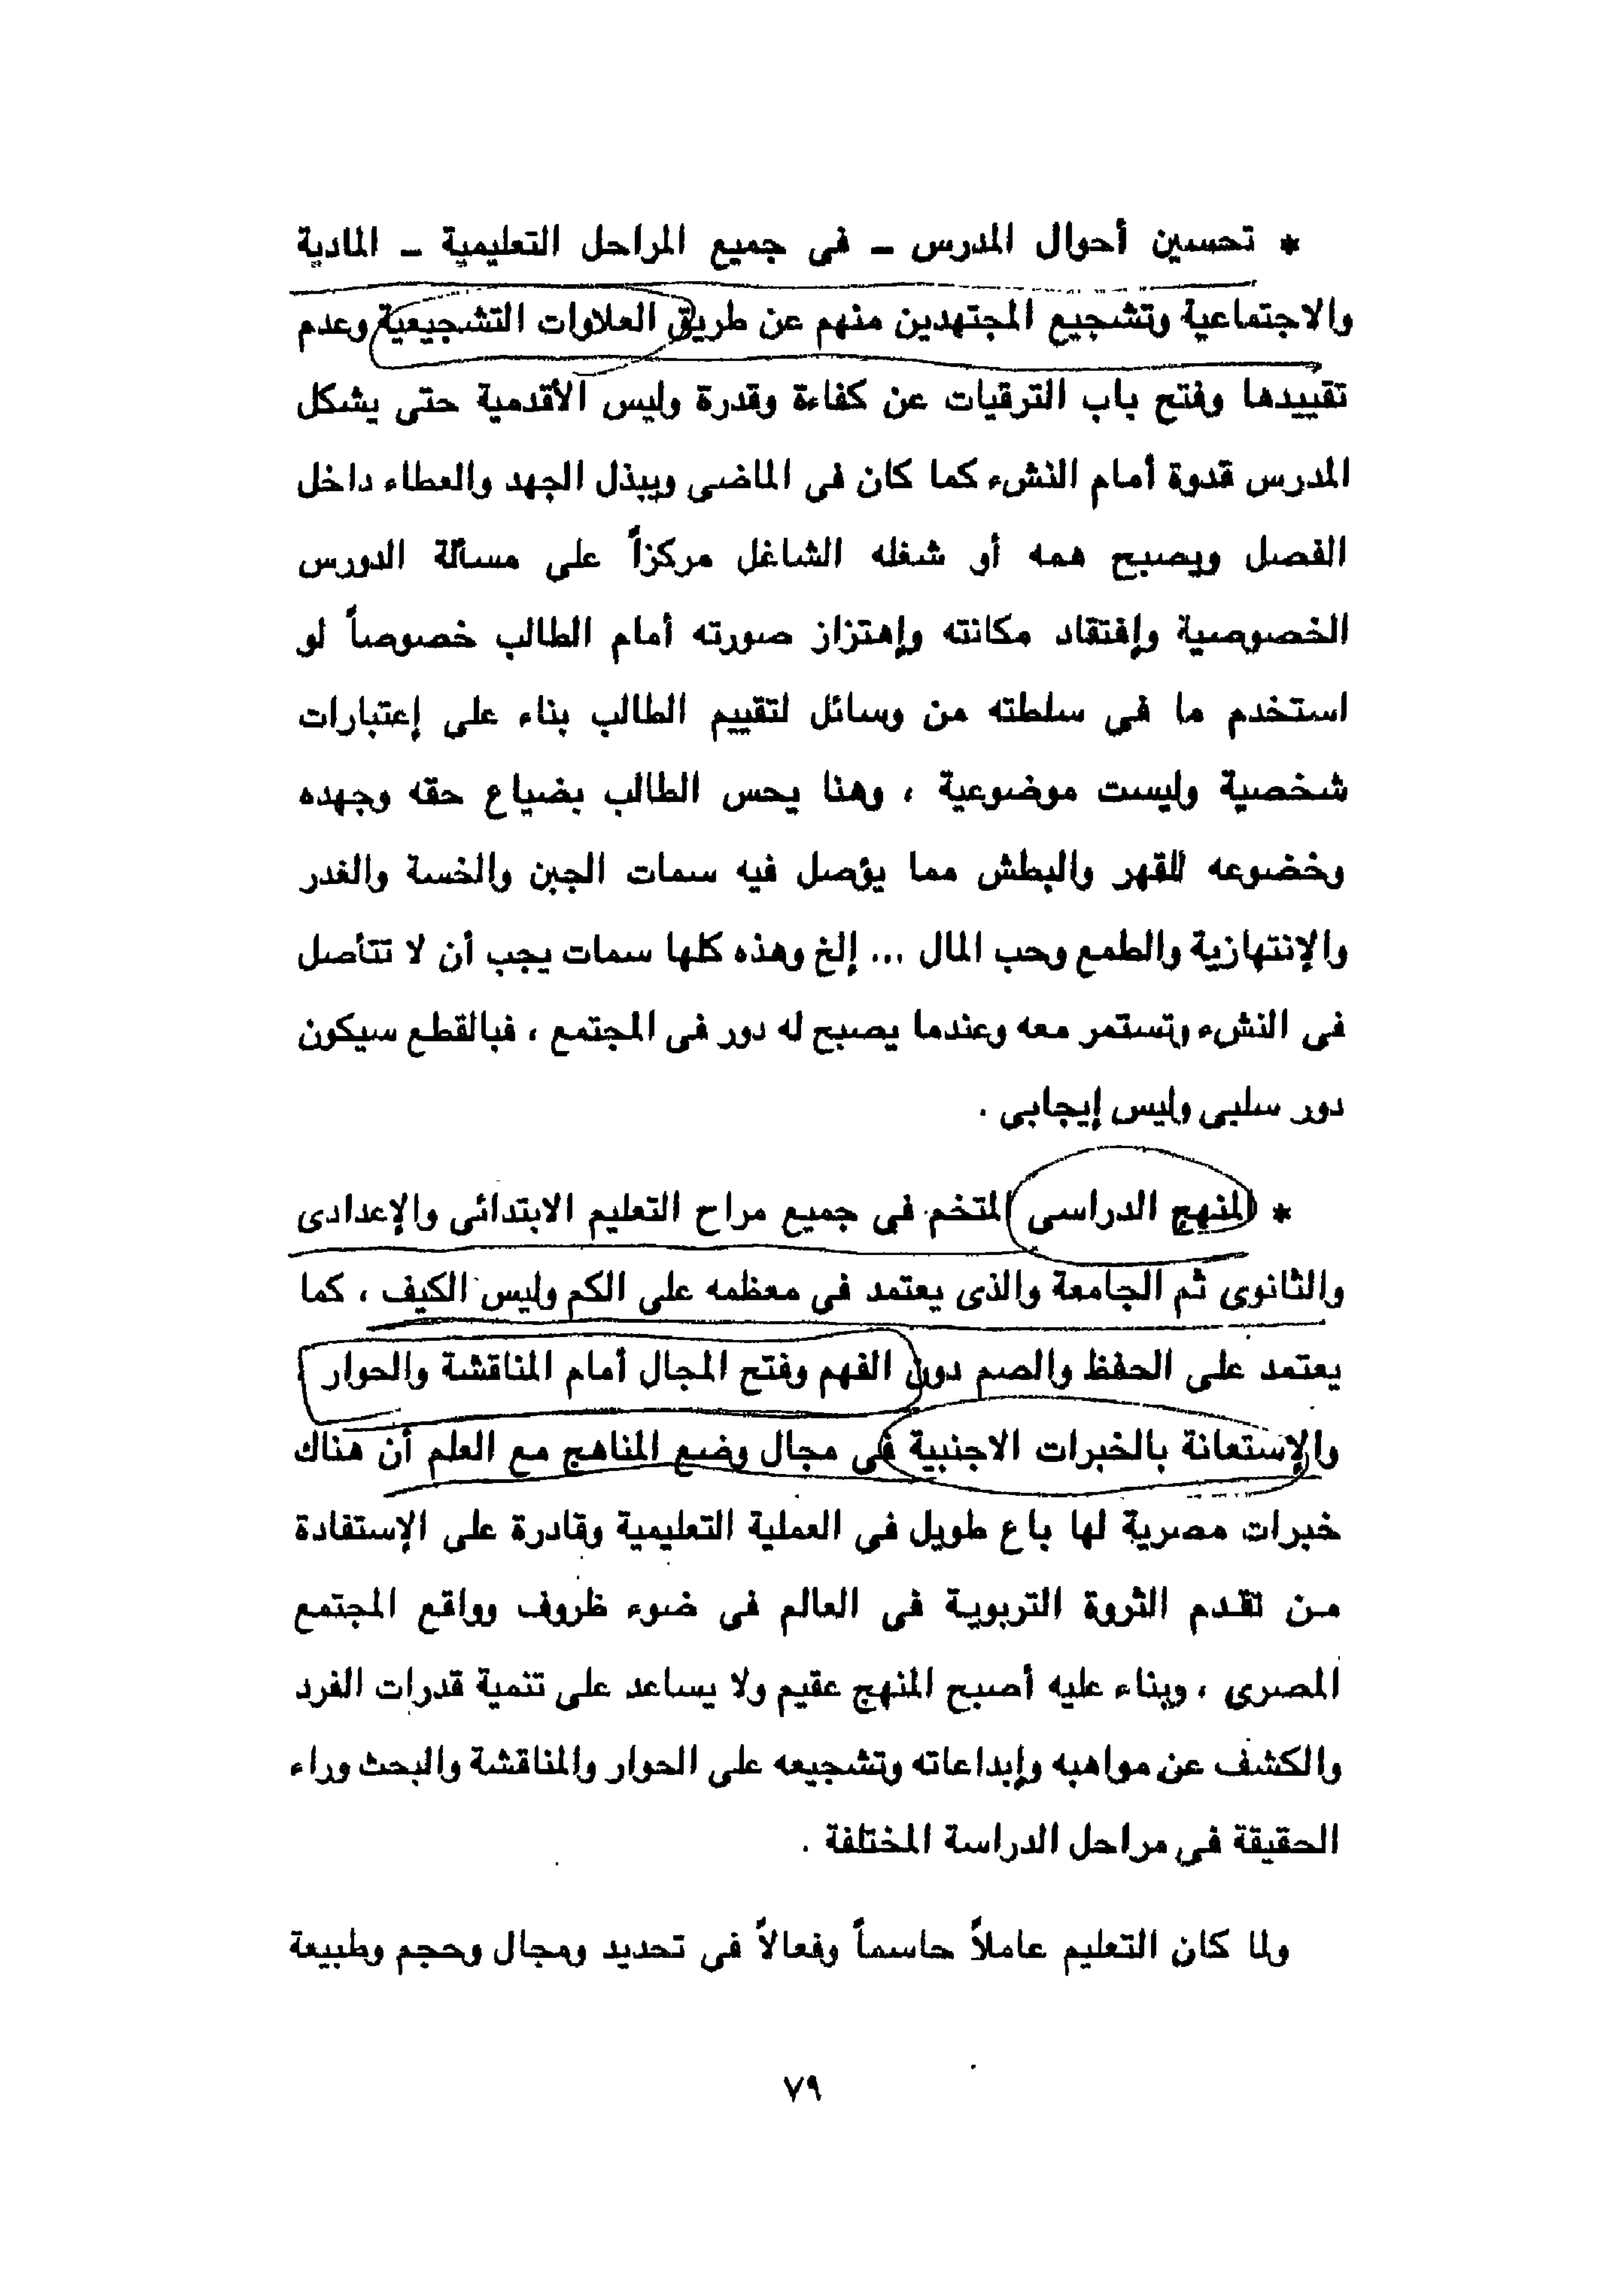 * تحسين أحوال المدرس – فى جميع المراحل التعليمية – المادية
والاجتماعية وتشجيع المجتهدين منهم عن طريق العلاوات التشجيعية وعدم
تقييدها وفتح باب الترقيات عن كفاءة وقدرة وليس الأقدمية حتى يشكل
المدرس قدوة أمام النشء كما كان فى الماضى ويبذل الجهد والعطاء داخل
الفصل ويصبح همه أو شغله الشاغل مركزاً على مسألة الدورس
الخصوصية وإفتقاد مكانته وإهتزاز صورته أمام الطالب خصوصاً لو
استخدم ما فى سلطته من وسائل لتقييم الطالب بناء على إعتبارات
شخصية وليست موضوعية ، وهنا يحس الطالب بضياع حقه وجهده
وخضوعه للقهر والبطش مما يؤصل فيه سمات الجبن والخسة والغدر
والإنتهازية والطمع وحب المال ... إلخ وهذه كلها سمات يجب أن لا تتأصل
فى النشء وتستمر معه وعندما يصبح له دور فى المجتمع ، فبالقطع سيكون
دور سلبى وليس إيجابى .
* المنهج الدراسى المتخم فى جميع مراح التعليم الابتدائى والإعدادى
والثانوى ثم الجامعة والذى يعتمد فى معظمه على الكم وليس الكيف ، كما
يعتمد على الحفظ والصم دون الفهم وفتح المجال أمام المناقشة والحوار
والإستعانة بالخبرات الاجنبية فى مجال وضع المناهج مع العلم أن هناك
خبرات مصرية لها باع طويل فى العملية التعليمية وقادرة على الإستفادة
من تقدم الثروة التربوية فى العالم فى ضوء ظروف وواقع المجتمع
المصرى ، وبناء عليه أصبح المنهج عقيم ولا يساعد على تنمية قدرات الفرد
والكشف عن مواهبه وإبداعاته وتشجيعه على الحوار والمناقشة والبحث وراء
الحقيقة فى مراحل الدراسة المختلفة .
ولما كان التعليم عاملاً حاسماً وفعالاً فى تحديد ومجال وحجم وطبيعة
٧٩